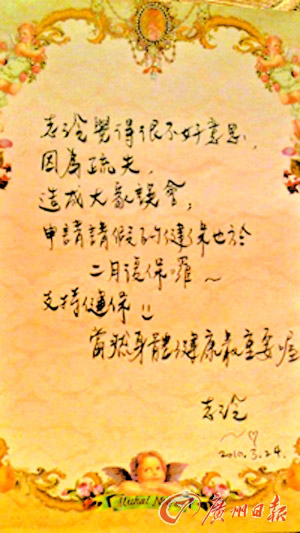 志玲覺得很不好意思,
因為疏失,
造成大家誤會,
申請請假的健保也於
二月復保囉~
支持健保
當然身體健康最重要喔
志玲
~♡
2010.3.24.
廣州日報